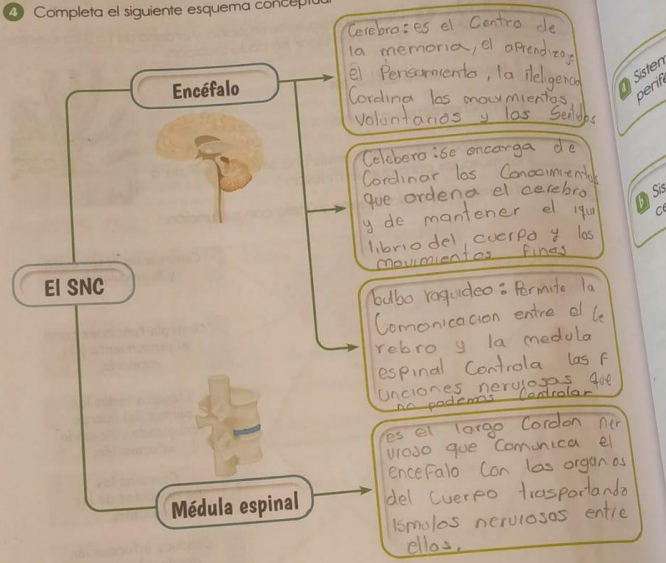 4 Completa el siguiente esquema conceptual
Cerebro: es el Centro de
la memoria, el aprendizaje
el Pensamiento, la iteligencia
Cordina los movmientos
voluntarios y los Sentidos
Encéfalo
Celebero: se encarga de
Cordinar los Conocimientos
que ordena el cerebro
y de mantener el iqui
librio del cuerpo y los
movimientos fines
El SNC
bulbo raquideo: Permite la
Comonicacion entre el Ce
rebro y la medula
espinal Controla las F
unciones nerviosas que
no podemos Controlar
Médula espinal
es el largo Cordon ner
vioso que Comunica el
encefalo Con los organos
del Cuerpo trasportando
ismolos nerviosos entre
ellos.
a Sistem
perifé
b Sis
ce